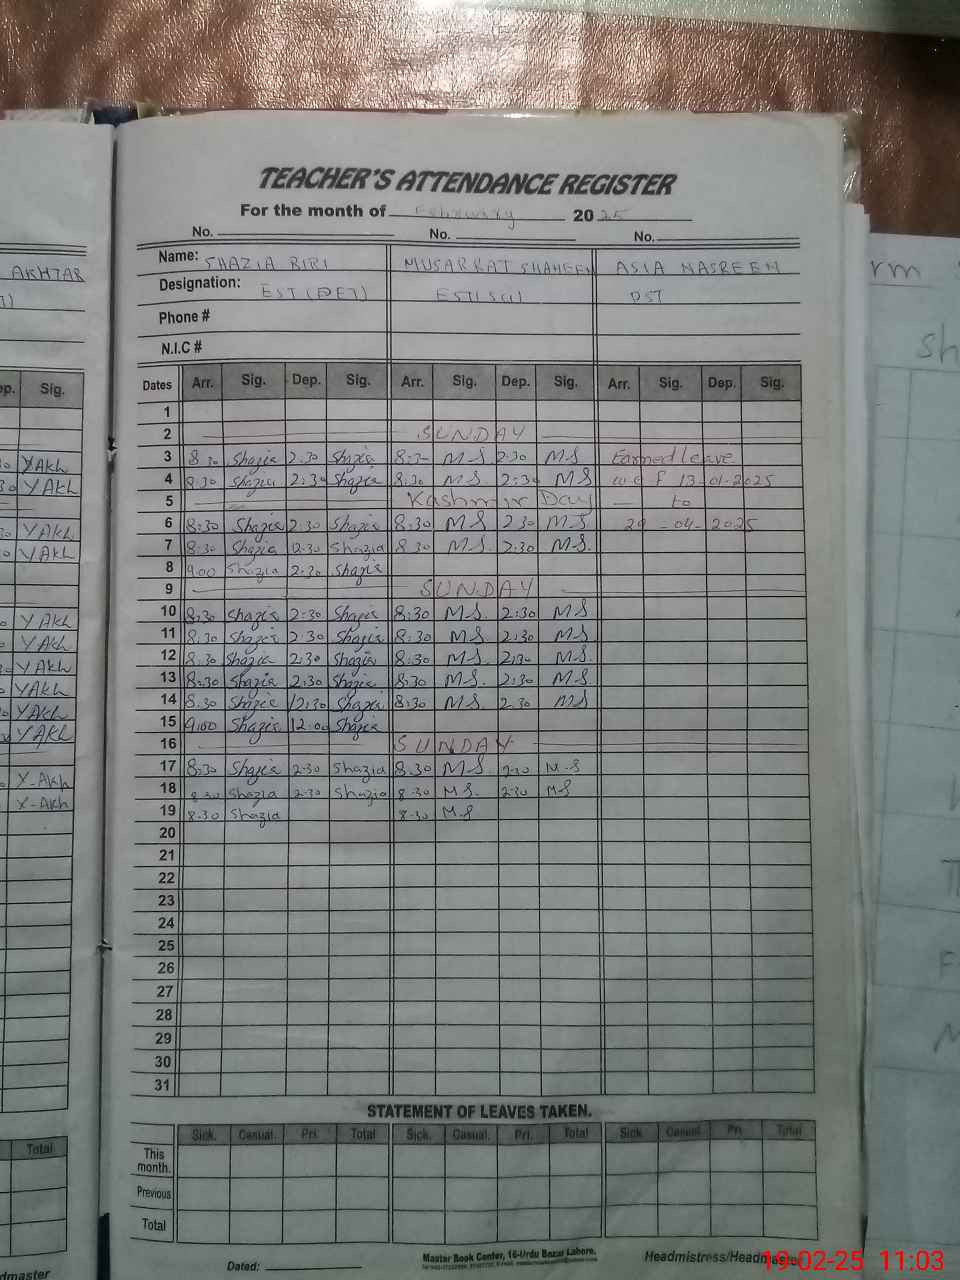 TEACHER'S ATTENDANCE REGISTER
For the month of February 2025
No. No. No.
AKHTAR
Name: SHAZIA BIBI MUSARRAT SHAHEEN ASIA NASREEN
Designation: EST (PET) PST
Phone #
N.I.C #
Sig. Dates Arr. Sig. Dep. Sig. Arr. Sig. Dep. Sig. Arr. Sig. Dep. Sig.
1
2 SUNDAY
YAKh 3 8:30 Shazia 2:30 Shazia 8:30 MS 2:30 MS Earned leave
YAKh 4 8:30 Shazia 2:30 Shazia 8:30 MS 2:30 MS w e f 13-01-2025
5 Kashmir Day to
YAKh 6 8:30 Shazia 2:30 Shazia 8:30 MS 2:30 MS -04-2025
YAKh 7 8:30 Shazia 12:30 Shazia 8:30 MS. MS.
8 9:00 Shazia 2:30 Shazia
9 SUNDAY
YAKh 10 8:30 Shazia 2:30 Shazia 8:30 MS. 2:30 MS
YAKh 11 8:30 Shazia 2:30 Shazia 8:30 MS 2:30 MS
YAKh 12 8:30 Shazia 2:30 Shazia 8:30 MS. 2:30 MS.
YAKh 13 8:30 Shazia 2:30 Shazia 8:30 MS. 2:30 MS.
YAKh 14 8:30 Shazia 12:30 Shazia 8:30 MS. 2:30 MS
YAKh 15 9:00 Shazia 12:00 Shazia
16 SUNDAY
Y-Akh 17 8:30 Shazia 2:30 Shazia 8:30 MS. 2:30 M-S
Y-Akh 18 8:30 Shazia 2:30 Shazia 8:30 MS. 2:30 MS
19 8:30 Shazia 8:30 M-S
20
21
22
23
24
25
26
27
28
29
30
31
STATEMENT OF LEAVES TAKEN.
Total Sick. Casual. Pri. Total Sick. Casual. Pri. Total Sick Casual Pri. Total
This month.
Previous
Total
Dated:
Master Book Center, 16-Urdu Bazar Lahore.
Headmistress/Headmaster
19-02-25 11:03